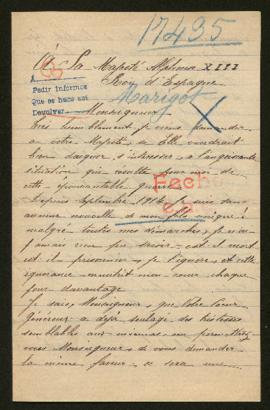 17435
À Sa Majesté Alphonse XIII
Roi d'Espagne
A
Pedir informes
Que se haga así
Devolver
Marigot
Monseigneur
Très humblement je viens demander
à votre Majesté si Elle voudrait
bien daigner s'intéresser à l'angoissante
situation que
cette épouvantable guerre
Fecho
Depuis Septembre 1914 je suis sans
aucune nouvelle de mon fils unique!
malgré toutes mes démarches, je n'ai
jamais rien pu savoir - est-il mort
est-il prisonnier, je l'ignore, et cette
ignorance meurtrit mon cœur chaque
jour davantage
Je sais, Monseigneur, que Votre Cœur
Généreux a déjà soulagé des détresses
semblable aux miennes, me permettez
vous Monseigneur, de vous demander
la même faveur, ce sera une